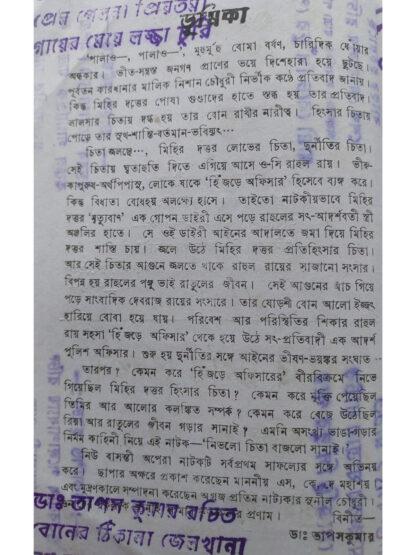 ভূমিকা
গাঁয়ের মেয়ে লক্ষ্মী
'পালাও—, পালাও—', মুহুর্মুহু বোমা বর্ষণ, চারিদিক ধোঁয়ার
অন্ধকার। ভীত-সন্ত্রস্ত জনগণ প্রাণের ভয়ে দিশেহারা হয়ে ছুটছে।
পূর্বতন কারখানার মালিক নিশান চৌধুরী নির্ভীক কণ্ঠে প্রতিবাদ জানায়,
কিন্তু মিহির দত্তর পোষা গুণ্ডাদের হাতে স্তব্ধ হয় তার প্রতিবাদ।
লালসার চিতায় দগ্ধ হয় তার বোন রাখীর নারীত্ব। হিংসার চিতায়
পোড়ে তার সুখ-শান্তি-বর্তমান-ভবিষ্যৎ...
চিতা জলছে..., মিহির দত্তর লোভের চিতা, দুর্নীতির চিতা।
সেই চিতায় ঘৃতাহুতি দিতে এগিয়ে আসে ও-সি রাহুল রায়। ভীরু-
কাপুরুষ-অর্থপিপাসু, লোকে যাকে 'হিঁজড়ে অফিসার' হিসেবে ব্যঙ্গ করে।
কিন্তু বিধাতা বোধহয় অলক্ষ্যে হাসে। তাইতো নাটকীয়ভাবে মিহির
দত্তর 'মৃত্যুবাণ' এক গোপন ডাইরী এসে পড়ে রাহুলের সৎ-আদর্শবতী স্ত্রী
অঞ্জলির হাতে। সে ওই ডাইরী আইনের আদালতে জমা দিয়ে মিহির
দত্তর শাস্তি চায়। জ্বলে উঠে মিহির দত্তর প্রতিহিংসার চিতা।
আর সেই চিতার আগুনে জলতে থাকে রাহুল রায়ের সাজানো সংসার।
বিপন্ন হয় রাহুলের পঙ্গু ভাই রাতুলের জীবন। সেই আগুনের আঁচ গিয়ে
পড়ে সাংবাদিক দেবরাজ রায়ের সংসারে। তার ষোড়শী বোন আলো ইজ্জৎ
হারিয়ে বোবা হয়ে যায়। পরিবেশ আর পরিস্থিতির শিকার রাহুল
রায় সহসা 'হিঁজড়ে অফিসার' থেকে হয়ে উঠে সৎ-প্রতিবাদী এক আদর্শ
পুলিশ অফিসার। শুরু হয় দুর্নীতির সঙ্গে আইনের ভীষণ-ভয়ঙ্কর সংঘাত...
তারপর? কেমন করে 'হিঁজড়ে অফিসারের' বীরবিক্রমে নিভে
গিয়েছিল মিহির দত্তর হিংসার চিতা? কেমন করে মুক্তি পেয়েছিল
তিমির আর আলোর কলঙ্কিত সম্পর্ক? কেমন করে বেজে উঠেছিল
রিয়া আর রাতুলের জীবন গড়ার সানাই? এমনি অসংখ্য ভাঙা-গড়ার
নির্মম কাহিনী নিয়ে এই নাটক—'নিভলো চিতা বাজলো সানাই'।
নিউ বাসন্তী অপেরা নাটকটি সর্বপ্রথম সাফল্যের সঙ্গে অভিনয়
করে। ছাপার অক্ষরে প্রকাশ করেছেন মাননীয় এস, কে, দে মহাশয়
এবং মুদ্রণকালে সম্পাদনা করেছেন অগ্রজ প্রতিম নাট্যকার সুনীল চৌধুরী।
প্রণাম। বিনীত—
ডাঃ তাপসকুমার
ডাঃ তাপস কুমার রচিত
বোনের ঠিকানা জেলখানা